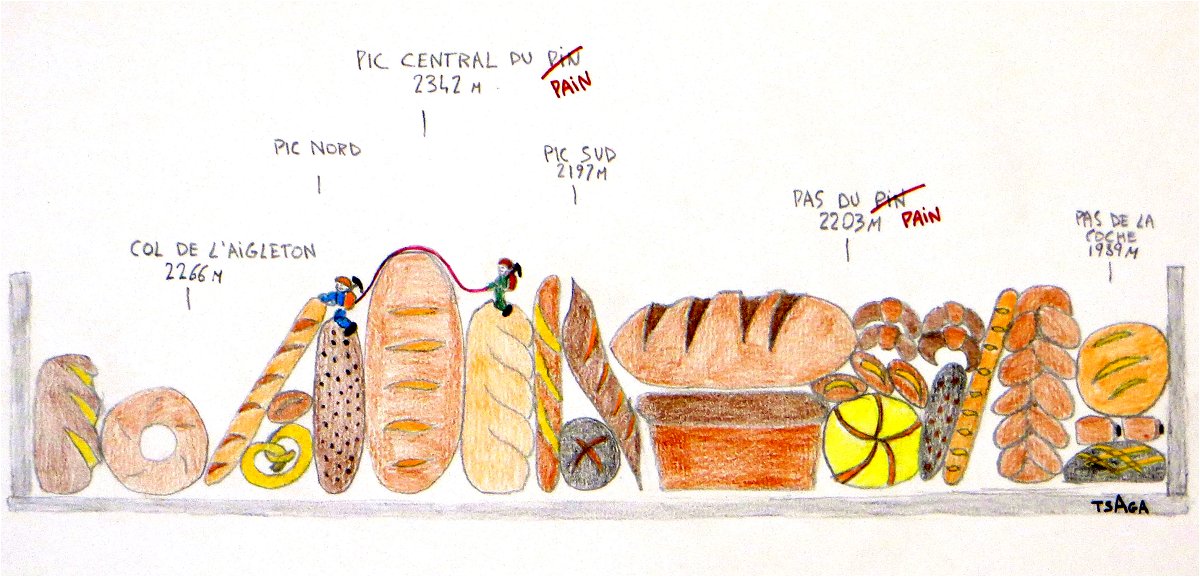 PIC CENTRAL DU PIN
PAIN
2342 M
PIC NORD
PIC SUD
2197M
PAS DU PIN
PAIN
2203M
PAS DE LA
COCHE
1989M
COL DE L'AIGLETON
2266 M
TSAGA